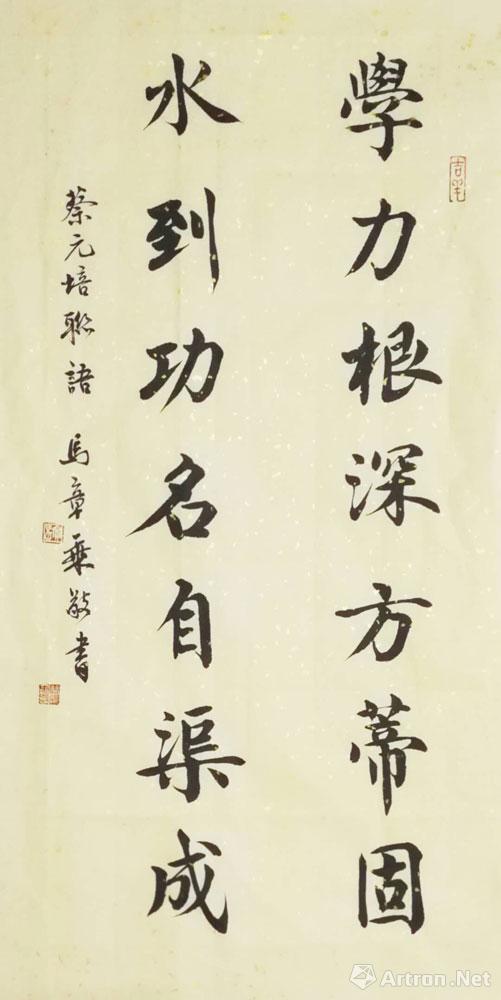 學力根深方蒂固
水到功名自渠成
蔡元培聯語 馬章乘敬書
Artron.Net